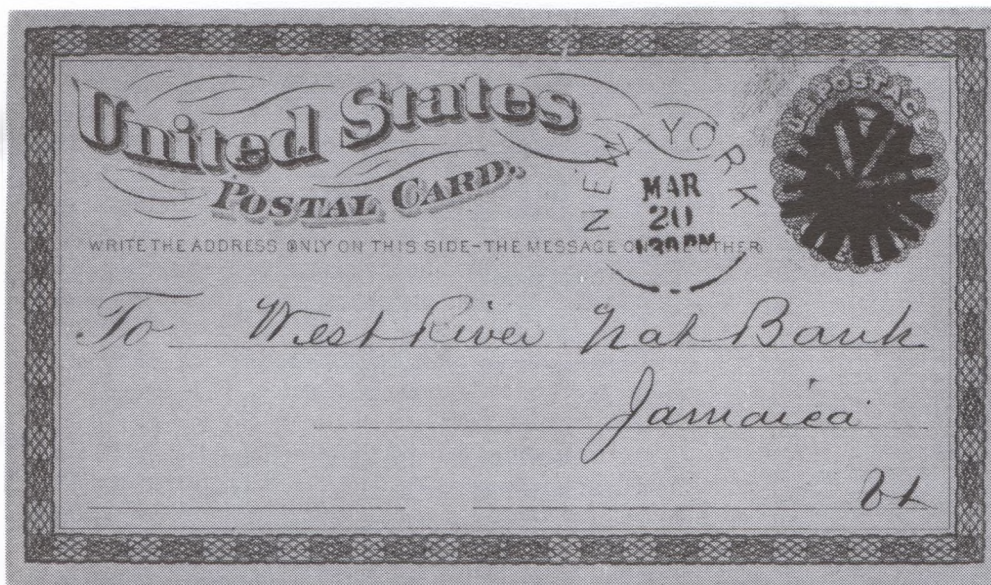 United States
POSTAL CARD.
U.S. POSTAGE
NEW YORK
MAR
20
1:30 PM
WRITE THE ADDRESS ONLY ON THIS SIDE-THE MESSAGE ON THE OTHER
To West River Nat Bank
Jamaica
Vt